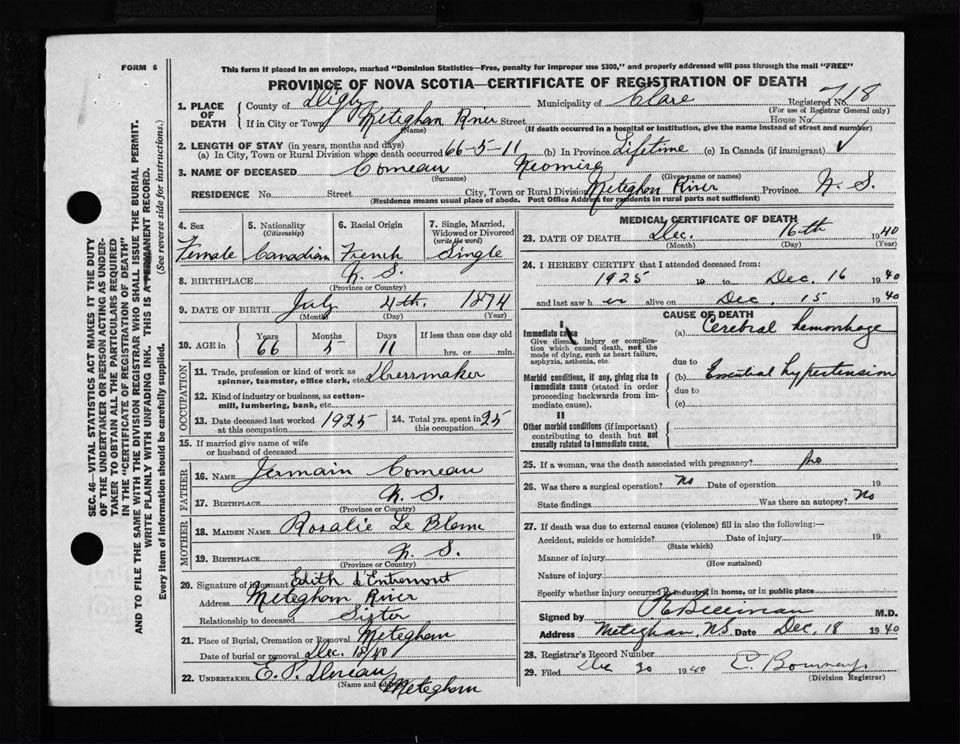 FORM 6
This form if placed in an envelope, marked "Dominion Statistics—Free, penalty for improper use $300," and properly addressed will pass through the mail "FREE"
PROVINCE OF NOVA SCOTIA—CERTIFICATE OF REGISTRATION OF DEATH
1. PLACE OF DEATH
County of Digby Municipality of Clare Registered No. 718
(For use of Registrar General only)
If in City or Town Meteghan River Street House No.
(Name) (If death occurred in a hospital or institution, give the name instead of street and number)
2. LENGTH OF STAY (in years, months and days)
(a) In City, Town or Rural Division where death occurred 66-5-11 (b) In Province Lifetime (c) In Canada (if immigrant) ✓
3. NAME OF DECEASED Comeau
(Surname) (Given name or names)
RESIDENCE No. Street City, Town or Rural Division Meteghan River Province N. S.
(Residence means usual place of abode. Post Office Address for residents in rural parts not sufficient)
4. Sex Female
5. Nationality (Citizenship) Canadian
6. Racial Origin French
7. Single, Married, Widowed or Divorced (write the word) Single
8. BIRTHPLACE N. S.
(Province or Country)
9. DATE OF BIRTH July 4th. 1874
(Month) (Day) (Year)
10. AGE in Years 66 Months 5 Days 11 If less than one day old hrs. or min.
OCCUPATION
11. Trade, profession or kind of work as spinner, teamster, office clerk, etc. Dressmaker
12. Kind of industry or business, as cotton-mill, lumbering, bank, etc.
13. Date deceased last worked at this occupation 1925
14. Total yrs. spent in this occupation 25
15. If married give name of wife or husband of deceased
FATHER
16. NAME Jermain Comeau
17. BIRTHPLACE N. S.
(Province or Country)
MOTHER
18. MAIDEN NAME Rosalie Le Blanc
19. BIRTHPLACE N. S.
(Province or Country)
20. Signature of informant Edith d'Entremont
Address Meteghan River
Relationship to deceased Sister
21. Place of Burial, Cremation or Removal Meteghan
Date of burial or removal Dec. 18/40
22. UNDERTAKER E. P.
(Name and address) Meteghan
MEDICAL CERTIFICATE OF DEATH
23. DATE OF DEATH Dec. 16th 1940
(Month) (Day) (Year)
24. I HEREBY CERTIFY that I attended deceased from:
1925 19 to Dec. 16 1940
and last saw h er alive on Dec. 15 1940
CAUSE OF DEATH
I
Immediate cause
Give disease, injury or complication which caused death, not the mode of dying, such as heart failure, asphyxia, asthenia, etc.
(a) Cerebral hemorrhage
due to
Morbid conditions, if any, giving rise to immediate cause (stated in order proceeding backwards from immediate cause).
(b) Essential hypertension
due to
(c)
II
Other morbid conditions (if important) contributing to death but not causally related to immediate cause.
25. If a woman, was the death associated with pregnancy? No
26. Was there a surgical operation? No Date of operation 19
State findings Was there an autopsy? No
27. If death was due to external causes (violence) fill in also the following:—
Accident, suicide or homicide? Date of injury 19
(State which)
Manner of injury
(How sustained)
Nature of injury
Specify whether injury occurred in industry, in home, or in public place
Signed by M.D.
Address Meteghan, N.S. Date Dec. 18 1940
28. Registrar's Record Number
29. Filed Dec 30 1940
(Division Registrar)
SEC. 46—VITAL STATISTICS ACT MAKES IT THE DUTY
OF THE UNDERTAKER OR PERSON ACTING AS UNDER-
TAKER TO OBTAIN ALL THE PARTICULARS REQUIRED
IN THE "CERTIFICATE OF REGISTRATION OF DEATH"
AND TO FILE THE SAME WITH THE DIVISION REGISTRAR WHO SHALL ISSUE THE BURIAL PERMIT.
WRITE PLAINLY WITH UNFADING INK. THIS IS A PERMANENT RECORD.
Every item of information should be carefully supplied. (See reverse side for instructions.)